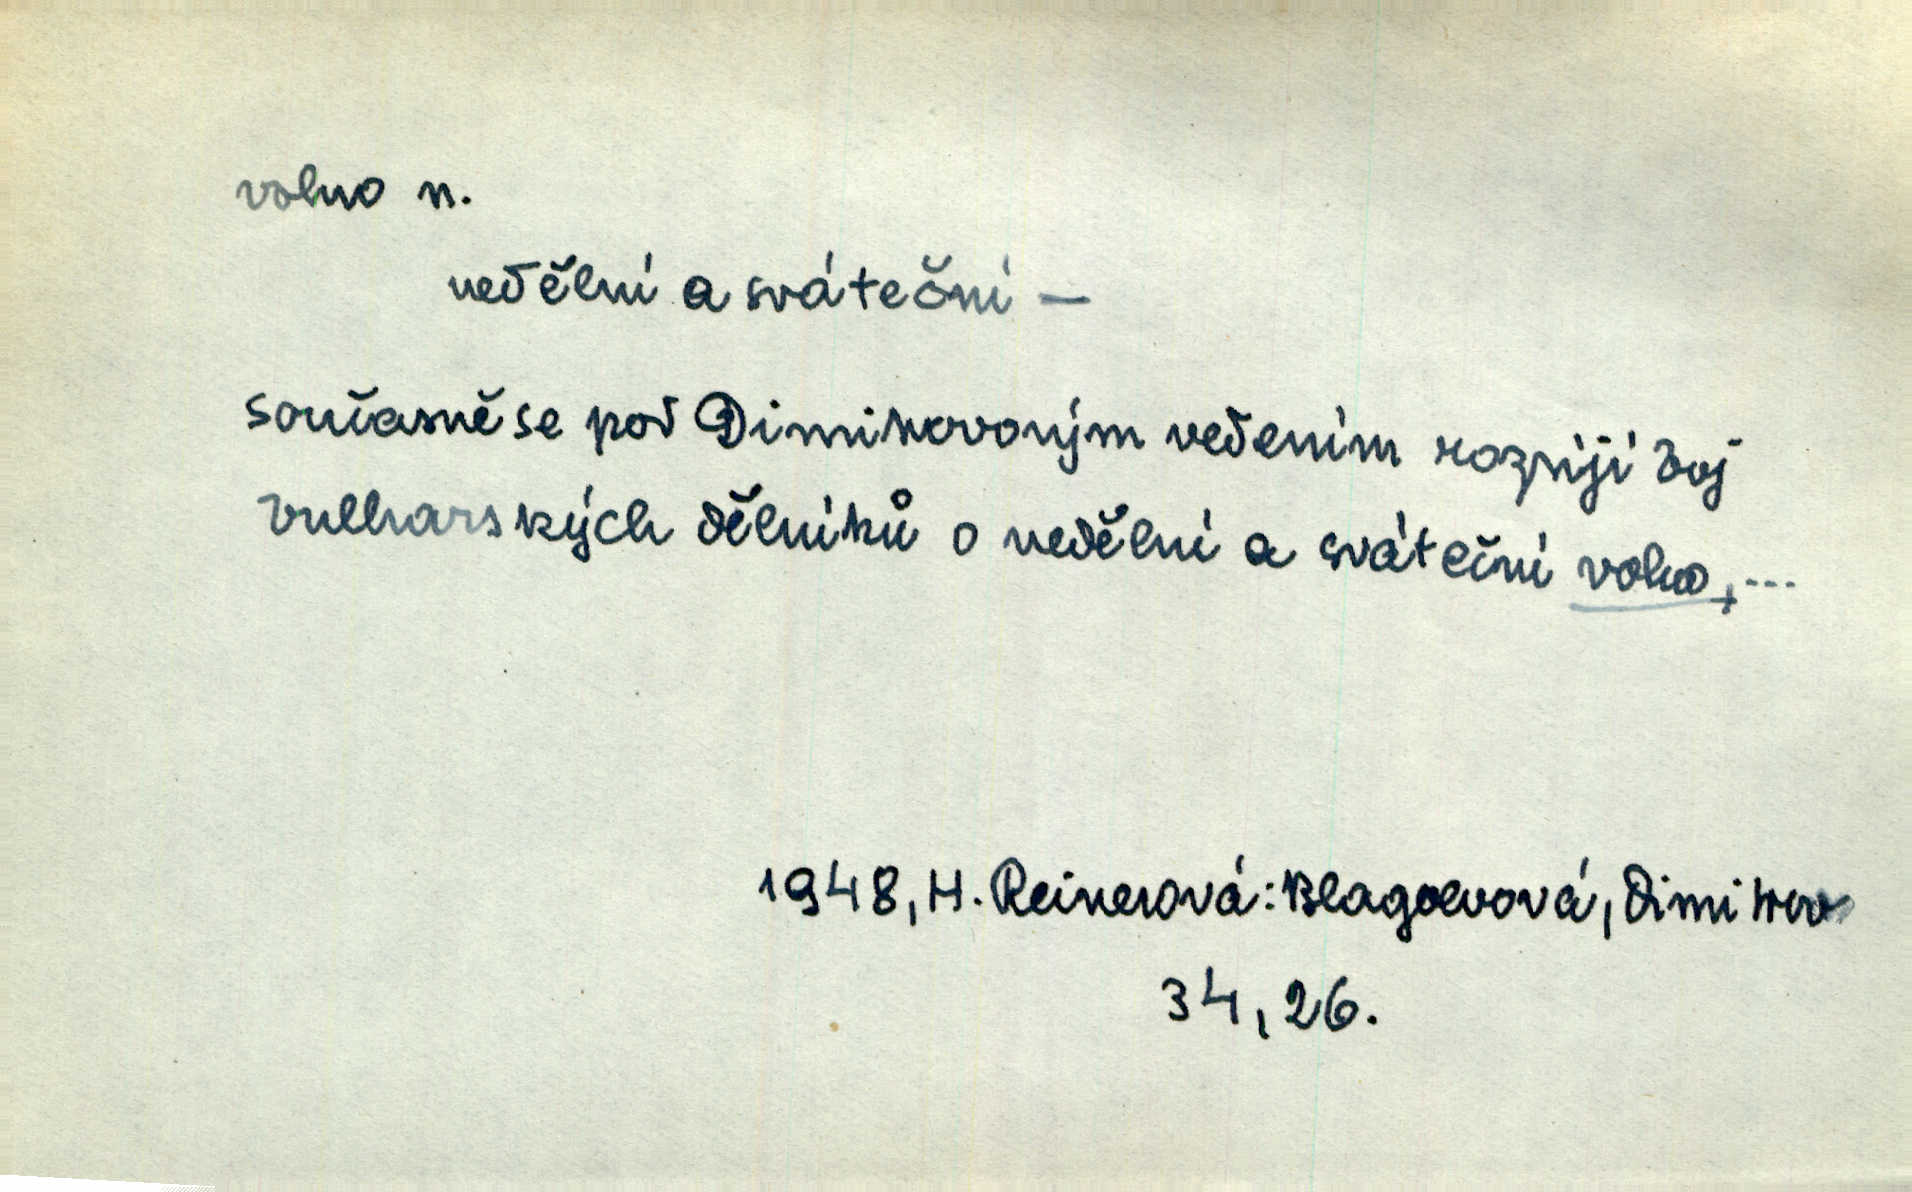 volno n.
nedělní a sváteční —
současně se pod Dimitrovovým vedením rozvíjí boj
bulharských dělníků o nedělní a sváteční volno, ---
1948, H. Reinerová: Blagoevová, Dimitrov
34, 26.